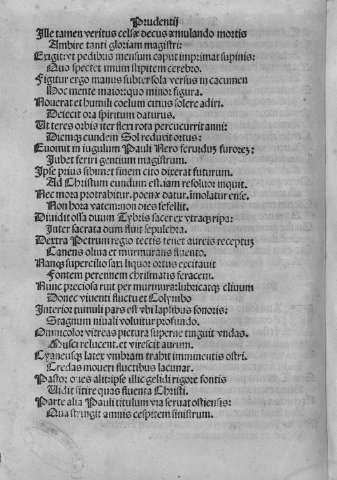 Prudentij
Ille tamen veritus celsæ decus æmulando mortis
Ambire tanti gloriam magistri:
Exigit: vt pedibus mersum caput imprimat supinis:
Quo spectet imum stipitem cerebro.
Figitur ergo manus subter sola versus in cacumen
Hoc mente maior: quo minor figura.
Nouerat ex humili coelum citius solere adiri.
Deiecit ora spiritum daturus.
Ut teres orbis iter flexi rota percucurrit anni:
Diemq; eundem Sol reduxit ortus:
Euomit in iugulum Pauli Nero feruidum furorem:
Jubet feriri gentium magistrum.
Ipse prius sibimet finem cito dixerat futurum.
Ad Christum eundum est. iam resoluor inquit.
Nec mora protrahitur. poenæ datur. imolatur ense.
Non hora vatem: non dies fefellit.
Diuidit ossa duum Tybris sacer ex vtraq; ripa:
Inter sacrata dum fluit sepulchra.
Dextra Petrum regio tectis tenet aureis receptum
Canens oliua et murmurans fluento.
Namq; supercilio saxi liquor ortus excitauit
Fontem perennem chrismatis feracem.
Nunc preciosa ruit per murmura: lubricatq; cliuum
Donec virenti fluctuet Colymbo
Interior tumuli pars est vbi lapsibus sonoris:
Stagnum niuali voluitur profundo.
Omnicolor vitreas pictura superne tinguit vndas.
Musci relucent. et virescit aurum.
Cyaneusq; latex vmbram trahit imminentis ostri.
Credas moueri fluctibus lacunar.
Pastor oues alit: ipse illic gelidi rigore fontis
Uidit sitire quas fluenta Christi.
Parte alia Pauli titulum via seruat ostiensis:
Qua stringit amnis cespitem sinistrum.